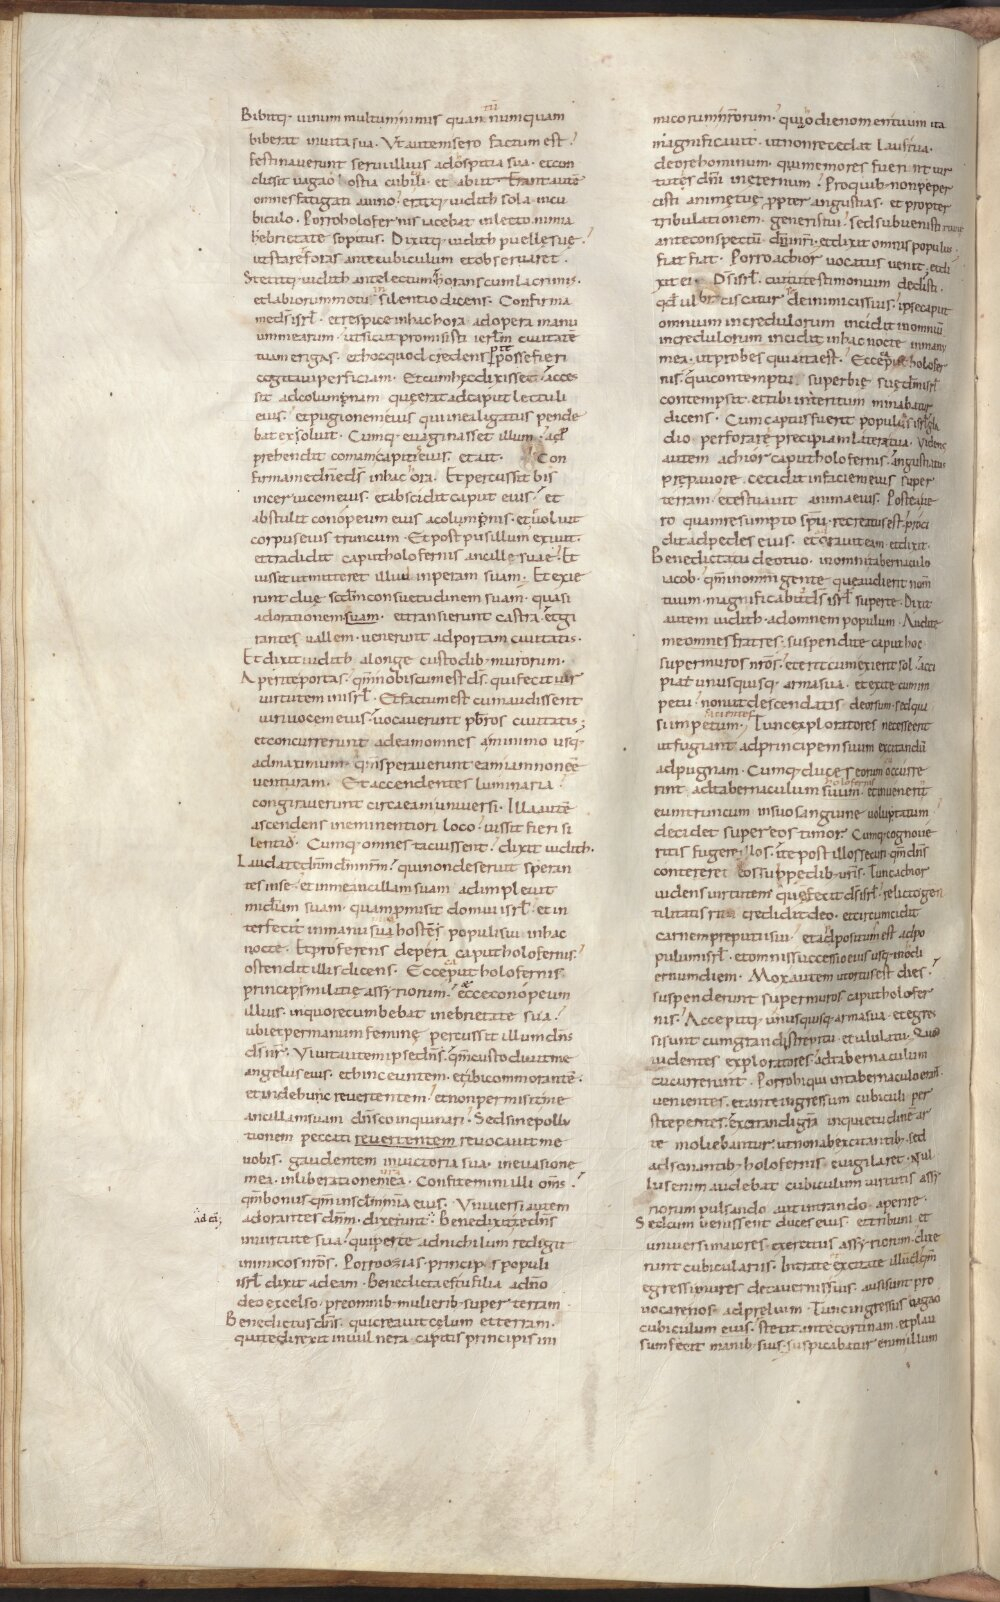 Bibitq; uinum multum nimis quantū numquam
biberat in uita sua. Ut autem sero factum est.
festinauerunt serui illius ad ospitia sua. et con
clusit uagao ostia cubili. et abiit. Erant autē
omnes fatigati a uino. eratq; iudith sola in cu
biculo. Porro holofernis iacebat in lecto. nimia
hebrietate sopitus. Dixitq; iudith puellę suę.
ut staret foras ante cubiculum et obseruaret.
Stetitq; iudith ante lectum orans cum lacrimis.
et labiorum motu in silentio dicens. Confirma
me dn̄s isrl̄. et respice in hac hora ad opera manu
um mearum. ut sicut promisisti ierl̄m ciuitatē
tuam erigas. et hoc quod credens per te posse fieri
cogitaui perficiam. Et cum hęc dixisset. acces
sit ad columpnam quę erat ad caput lectuli
eius. et pugionem eius qui in ea ligatus pende
bat exsoluit. Cumq; euaginasset illum. ap
prehendit comam capitis eius. et ait. Con
firma me dn̄e ds̄ in hac ora. Et percussit bis
in ceruicem eius. et abscidit caput eius. et
abstulit conopeum eius a columpnis. et uoluit
corpus eius truncum. Et post pusillum exiuit.
et tradidit caput holofernis ancille suae. Et
iussit ut mitteret illud in peram suam. Et exie
runt duę scdm consuetudinem suam. quasi
ad orationem suam. et transierunt castra. et gi
rantes uallem. uenerunt ad portam ciuitatis.
Et dixit iudith a longe custodib; murorum.
Aperite portas. qm̄ nobiscum est ds̄. qui fecit
uirtutem in isrl̄. Et factum est cum audissent
uiri uocem eius. uocauerunt pb̄ros ciuitatis;
et concurrerunt ad eam omnes a minimo usq;
ad maximum. qm̄ sperauerunt eam iam non eē
uenturam. Et accendentes luminaria.
congirauerunt circa eam uniuersi. Illa autē
ascendens in eminentiori loco. iussit fieri si
lentiū. Cumq; omnes tacuissent. dixit iudith.
Laudate dn̄m dm̄ nr̄m. qui non deseruit speran
tes in se. et in me ancillam suam adimpleuit
mic̄diam suam. quam pmisit domui isrl̄. et in
terfecit in manu sua hostes populi sui in hac
nocte. Et proferens de pera caput holofernis.
ostendit illis dicens. Ecce caput holofernis
principis militię assyriorum. ecce conopeum
illius. in quo recumbebat in ebrietate sua.
ubi et per manum feminę percussit illum dn̄s
ds̄ nr̄. Viuit autem ipse dn̄s. qm̄ custodiuit me
angelus eius. et hinc euntem. et ibi commorantē.
et inde hunc reuertentem. et non permisit me
ancillam suam dn̄s coinquinari. Sed sine pollu
tionem peccati reuertentem reuocauit me
uobis. gaudentem in uictoria sua. in euasione
mea. in liberatione mea. Confitemini illi om̄s.
qm̄ bonus. qm̄ in sclm̄ mīa eius. Vniuersi autem
ad eā;
adorantes dn̄m. dixerunt. Benedixit te dn̄s
in uirtute sua. qui per te ad nichilum redegit
inimicos nr̄os. Porro ozias. princips populi
isrl̄ dixit ad eam. Benedicta es tu filia a dn̄o
deo excelso. pre omnib; mulierib; super terram.
Benedictus dn̄s. qui creauit cęlum et terram.
qui te direxit in uulnera capitis principis ini
micorum nr̄orum. quia hodie nomen tuum ita
magnificauit. ut non recedat laus tua
de ore hominum. qui memores fuerint uir
tutes dn̄i in eternum. Pro quib; non peper
cisti animę tuę ppter angustias. et propter
tribulationem generis tui. sed subuenisti ruine
ante conspectū dī nr̄i. et dixit omnis populus.
fiat fiat. Porro achior uocatus uenit. et di
xit ei. Ds̄ isrl̄. cui tu testimonium dedisti.
qd̄ ulciscatur se de inimicis suis. ipse caput
omnium incredulorum incidit in omniū
incredulorum incidit in hac nocte in manu
mea. ut probes quia ita est. Ecce caput holofer
nis. qui contemptu superbię suę dm̄ isrl̄
contempsit. et tibi interitum minabatur
dicens. Cum captus fuerit populus isrl̄ gla
dio perforare precipiam latera tua. Videns
autem achior caput holofernis. angustiatus
prę pauore. cecidit in faciem eius super
terram. et estuauit anima eius. Postea ue
ro quam resumpto spū. recreatus est. proci
dit ad pedes eius. et orauit eam. et dixit.
Benedicta tu deo tuo. in omni tabernaculo
iacob. qm̄ in omni gente que audierit nom̄
tuum. magnificabitur ds̄ isrl̄ super te. Dixit
autem iudith. ad omnem populum. Audite
me omnes fratres. suspendite caput hoc
super muros nr̄os. et erit cum exierit sol. acci
piat unusquisq; arma sua. et exite cum im
petu. non ut descendatis deorsum. sed qua
si impetum facientes. Tunc exploratores necesse erit
ut fugiant ad principem suum excitandū
ad pugnam. Cumq; duces eorum occurre
rint ad tabernaculum holofernis suum. et inuenerīt
eum truncum in suo sanguine uoluptatum
decidet super eos timor. Cumq; cognoue
ritis fugere illos. ite post illos securi. qm̄ dn̄s
conteret eos sup pedib; uris. Tunc achior
uidens uirtutem quę fecit ds̄ isrl̄. relicto gen
tilitatis ritu credidit deo. et circumcidit
carnem preputii sui. et adpositum est ad po
pulum isrl̄. et omnis successio eius usq; in odi
ernum diem. Mox autem ut ortus est dies.
suspenderunt super muros caput holofer
nis. Accepitq; unusquisq; arma sua. et egres
si sunt cum grandi strepitu. et ululatu. Quod
uidentes exploratores. ad tabernaculum
cucurrerunt. Porro hi qui in tabernaculo erant.
uenientes. et ante ingressum cubiculi per
strepentes. excitandi gra inquietudinē ar
te moliebantur. ut non ab excitantib; sed
a sonantib; holofernis euigilaret. Nul
lus enim audebat cubiculum uirtutis assy
riorum pulsando aut intrando aperire.
Sed cum uenissent duces eius et tribuni. et
uniuersi maiores exercitus assyriorum. dixe
runt cubiculariis. Intrate excitate illum. qm̄
egressi mures de cauernis suis. ausi sunt pro
uocare nos ad prelium. Tunc ingressus uagao
cubiculum eius. stetit ante cortinam. et plau
sum fecit manib; suis. suspicabatur enim illum